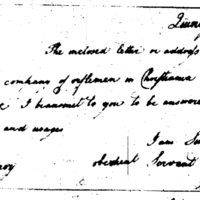 The inclosed letter or address
company of riflemen in
I transmit to you to be answered
and usages
I am
obedient Servant